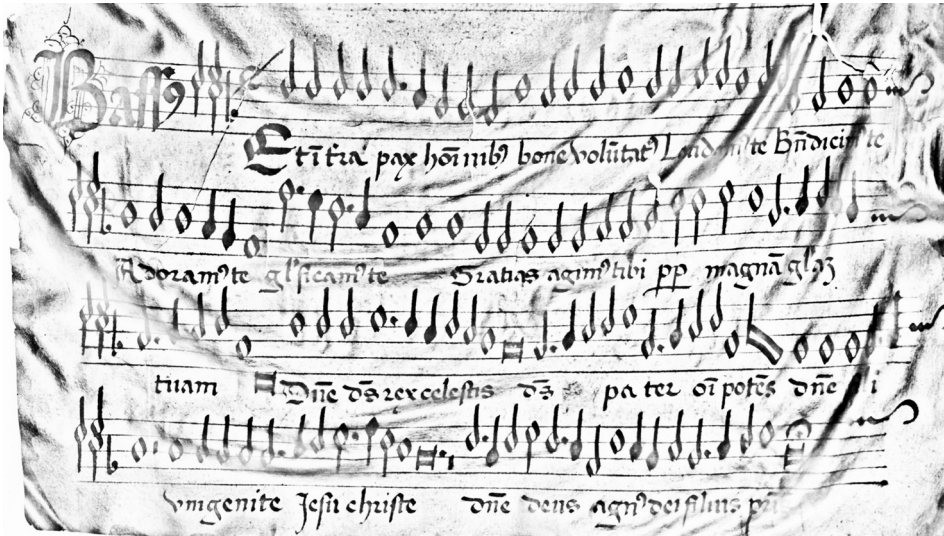 Bassꝰ
Et ĩ t̃ra pax hoĩnibꝰ bone volũtatꝭ Laudamꝰ te Bñdicimꝰ te
Adoramꝰ te gl̃ficamꝰ te Gratias agimꝰ tibi pp̃ magnã gl̃aꝫ
tuam Dñe d̃s rex celestis d̃s pater oĩpotẽs dñe
vnigenite Jesu christe dñe deus agnꝰ dei filius